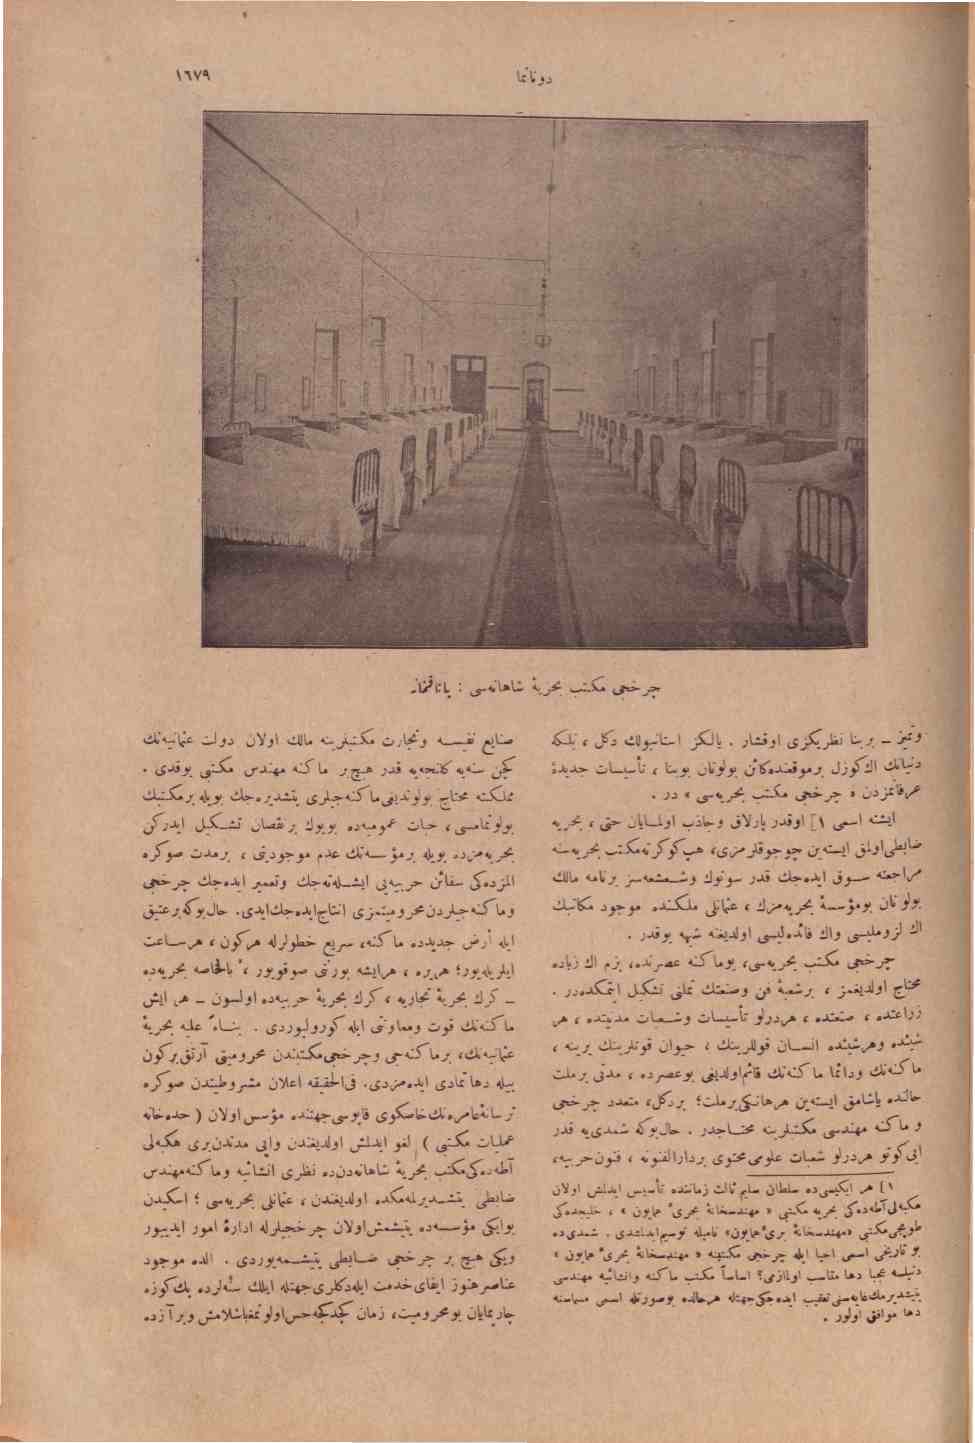 دوناﻧﻤﺎ
١٦٧٩
چرخجی مکتب بحریۀ شاهانه‌سی : یاتاقخانه
وتمیز ــ بر بنا نظریکزی اوقشار . یالکز استانبولك دکل ، بلکه
دنیانك اك کوزل برموقعنده کائن بولونان بوبنا ، تأسیسات جدیدۀ
عرفانمزدن « چرخجی مکتب بحریه‌سی » در .
ایشته اسمی ١] اوقدر پارلاق وجاذب اولمایان حتی ، بحریه
ضابطی اولمق ایسته‌ین چوجوقلرمزی، هپ کوکرته مکتب بحریه‌سنه
مراجعته ســوق ایده‌جك قدر سونوك وشــعشعه‌سز برنامه مالك
بولونان بومؤسسۀ بحریه‌مزك ، عثمانلی ملکنده موجود مکاتبك
اك لزوملیسی واك فائده‌لیسی اولدیغنه شبهه یوقدر .
چرخجی مکتب بحریه‌سی، بوماکنه عصرنده، بزم اك زیاده
محتاج اولدیغمز ، برشعبۀ فن وصنعتك تملنی تشکیل ایتمکده‌در .
زراعتده ، صنعتده ، هردرلو تأسیسات وشــعبات مدنیتده ، هر
شیئده وهرشیئده انســان قوللرینك ، حیوان قوتلرینك یرینه ،
ماکنه‌نك ودائما ماکنه‌نك قائم اولدیغی بوعصرده ، مدنی برملت
حالنده یاشامق ایسته‌ین هرهانکی برملت؛ بردکل، متعدد چرخجی
و ماکنه مهندسی مکتبلرینه محتــاجدر . حال‌بوکه شمدی‌یه قدر
ایی کوتو هردرلو شعبات علومی محتوی بردارالفنونه ، فنون حربیه،
١] هر ایکیسی‌ده سلطان سلیم ثالث زماننده تأسیس ایدلمش اولان
هکبه‌لی آطه‌ده‌کی بحریه مکتبی « مهندسخانۀ بحریٔ همایون » ، خلیجده‌کی
طوپجی مکتبی «مهندسخانۀ بریٔ همایون» نامیله توسیم ایدلمشدی . شمدی‌ده
بو تاریخی اسمی احیا ایله چرخجی مکتبنه « مهندسخانۀ بحریٔ همایون »
دنیلسه عجبا دها مناسب اولمازمی؟ اساساً مکتب ماکنه وانشائیه مهندسی
یتیشدیرمك غایه‌سنی تعقیب ایده‌جکی جهتله هرحالده بوصورتله اسمی مسماسنه
دها موافق اولور .
صنایع نفیســه وتجارت مکتبلرینه مالك اولان دولت عثمانیه‌نك
کچن سنه‌یه کلنجه‌یه قدر هیچ بر ماکنه مهندس مکتبی یوقدی .
مملکتنه محتاج بولوندیغی ماکنه‌جیلری یتشدیره‌جك بویله برمکتبك
بولونمامسی ، حیات عمومیه‌ده بویوك برنقصان تشــکیل ایدرکن
بحریه‌مزده بویله برمؤســه‌نك عدم موجودیتی ، برمدت صوکره
المزده‌کی سفائن حربیه‌یی ایشــلته‌جك وتعمیر ایده‌جك چرخجی
وماکنه‌جیلردن محرومیتمزی انتاج ایده‌جك‌ایدی. حال‌بوکه برعتیق
ایله أرض جدیدده ماکنه، سریع خطوه‌لرله هرکون ، هرســاعت
ایلریله‌یور؛ هریره ، هرایشه بورنی صوقویور ، بالخاصه بحریه‌ده
ــ کرك بحریۀ تجاریه ، کرك بحریۀ حربیه‌ده اولسون ــ هر ایش
ماکنه‌نك قوت ومعاونتی ایله کورولیوردی . بنــاءً علیه بحریۀ
عثمانیه‌نك، برماکنه‌جی وچرخجی مکتبندن محرومیتی آرتق برکون
بیله دها تمادی ایده‌مزدی. فی‌الحقیقه اعلان مشروطیتدن صوکره
ترسانۀعامره‌نك خاصکوی قاپوسی جهتنده مؤسس اولان ( حده‌خانه
عملیات مکتبی ) لغو ایدلمش اولدیغندن وایی مدتدن بری هکبه‌لی
آطه‌ده‌کی مکتب بحریۀ شاهانه‌دن‌ده نظری انشائیه وماکنه مهندس
ضابطی یتشــدیریله‌مکده اولدیغندن ، عثمانلی بحریه‌سی ؛ اسکیدن
بوایکی مؤسسه‌ده یتیشمش اولان چرخجیلرله ادارۀ امور ایدییور
ویکی هیچ بر چرخجی ضــابطی یتیشــمه‌یوردی . الده موجود
عناصر هنوز ایفای خدمت ایله‌دکلری جهتله ایلك سنه‌لرده پك کوزه
چارپمایان بومحرومیت، زمان کچدکجه حس اولونمغه باشلامش وبر آزده